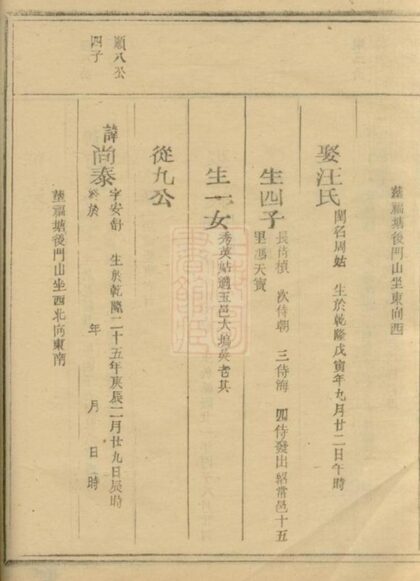 葬福塘後門山坐東向西
娶汪氏 閨名周姑 生於乾隆戊寅年九月廿二日午時
生四子 長侍楨 次侍朝 三侍海 四侍發出紹常邑十五
里馮天寶
生一女 秀英姑適玉邑大塢英老其
從九公
諱尚泰 字安 生於乾隆二十五年庚辰二月廿九日辰時
終於 年 月 日 時
葬福塘後門山坐西北向東南
順八公
四子